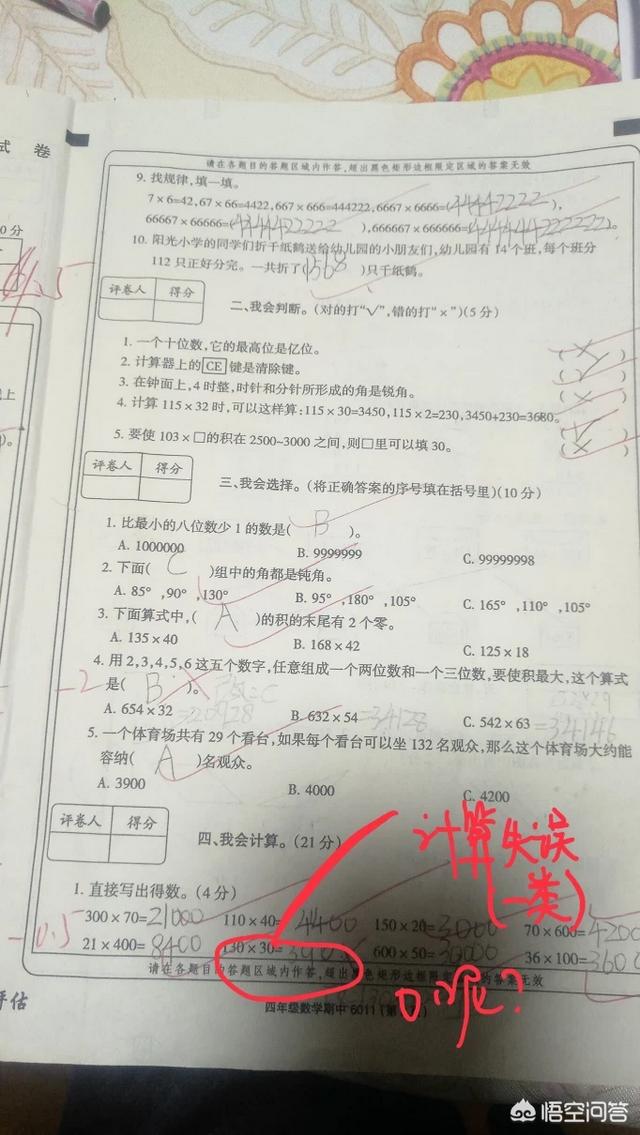 试 卷
请在各题目的答题区域内作答,超出黑色矩形边框限定区域的答案无效
9. 找规律,填一填。
7×6=42,67×66=4422,667×666=444222,6667×6666=(44442222),
66667×66666=( ),666667×666666=( )。
10. 阳光小学的同学们折千纸鹤送给幼儿园的小朋友们,幼儿园有14个班,每个班分
112只正好分完。一共折了(1568)只千纸鹤。
评卷人 得分
二、我会判断。(对的打“√”,错的打“×”)(5分)
1. 一个十位数,它的最高位是亿位。
2. 计算器上的CE键是清除键。
3. 在钟面上,4时整,时针和分针所形成的角是锐角。
4. 计算115×32时,可以这样算:115×30=3450,115×2=230,3450+230=3680。
5. 要使103×□的积在2500~3000之间,则□里可以填30。
评卷人 得分
三、我会选择。(将正确答案的序号填在括号里)(10分)
1. 比最小的八位数少1的数是( B )。
A. 1000000 B. 9999999 C. 99999998
2. 下面( C )组中的角都是钝角。
A. 85°,90°,130° B. 95°,180°,105° C. 165°,110°,105°
3. 下面算式中,( A )的积的末尾有2个零。
A. 135×40 B. 168×42 C. 125×18
4. 用2,3,4,5,6这五个数字,任意组成一个两位数和一个三位数,要使积最大,这个算式
-2 是( B )。
A. 654×32 =20928 B. 632×54 =34128 C. 542×63 =34146
5. 一个体育场共有29个看台,如果每个看台可以坐132名观众,那么这个体育场大约能
容纳( A )名观众。
A. 3900 B. 4000 C. 4200
评卷人 得分
四、我会计算。(21分)
计算失误
(一类)
1. 直接写出得数。(4分)
300×70=21000 110×40=4400 150×20=3000 70×600=4200
-0.5 21×400=8400 130×30= 600×50=30000 36×100=3600
请在各题目的答题区域内作答,超出黑色矩形边框限定区域的答案无效
0呢?
评估
四年级数学期中6011(第
悟空问答